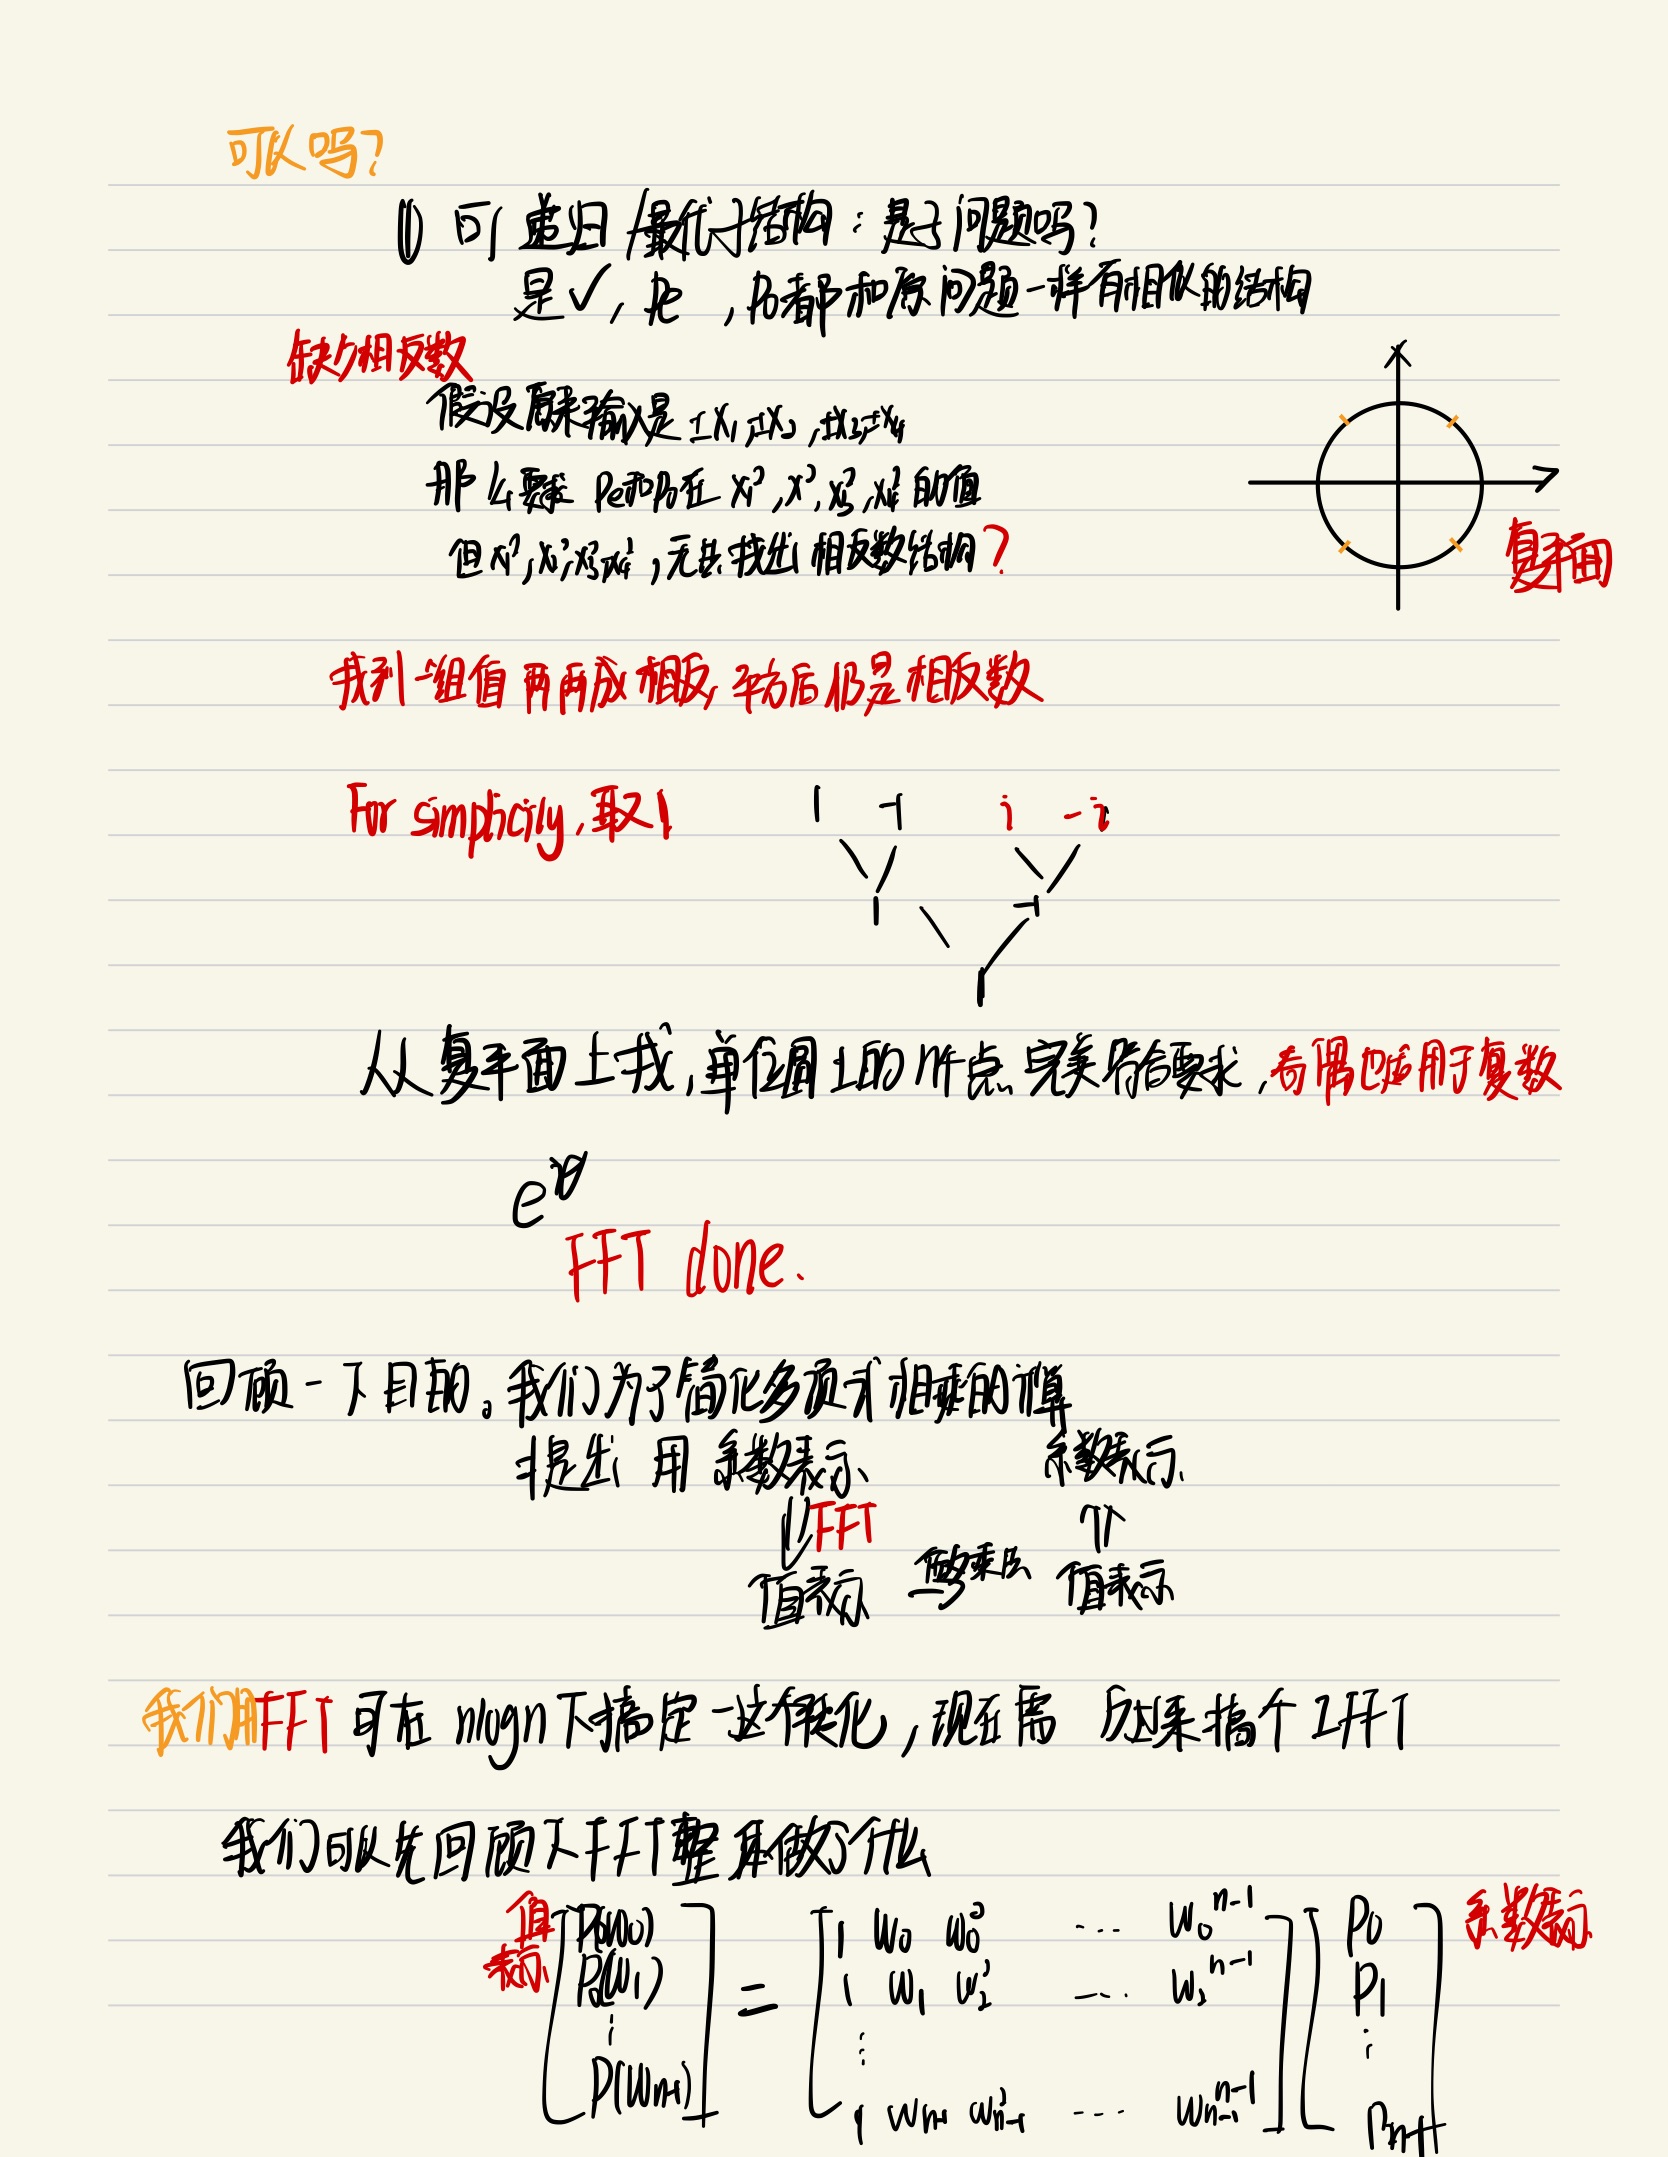 可以吗?
① 可递归/最优子结构:是子问题吗?
是✓, Pe , Po都和原问题一样有相似的结构
缺少相反数
假设原来输入是 ±x₁,±x₂,±x₃,±x₄
那么要求 Pe和Po在 x₁²,x²,x₃²,x₄² 的值
但x₁²,x₂²,x₃²,x₄²,无法找出相反数结构?
复平面
找到一组值 两两成相反,平方后仍是相反数
For simplicity,取1
1 -1 i -i
1 -1
1
从复平面上找,单位圆上的n个点 完美符合要求,奇偶也适用于复数
e^{iθ}
FFT done.
回顾一下目的。我们为了简化多项式相乘的计算
提出 用 系数表示 系数表示
⇓FFT ⇑
值表示 乘法 值表示
我们用FFT 可在 nlogn下搞定一这个转化, 现在需 搞个 IFFT
我们可以先回顾下FFT整体做了什么
值表示 [P(w₀) = [1 w₀ w₀² ... w₀ⁿ⁻¹] [P₀ 系数表示
P(w₁) 1 w₁ w₂² ... w₂ⁿ⁻¹ P₁
⋮ ⋮ ⋮
P(wₙ₋₁)] 1 wₙ₋₁ wₙ₋₁² ... wₙ₋₁ⁿ⁻¹] Pₙ₋₁]